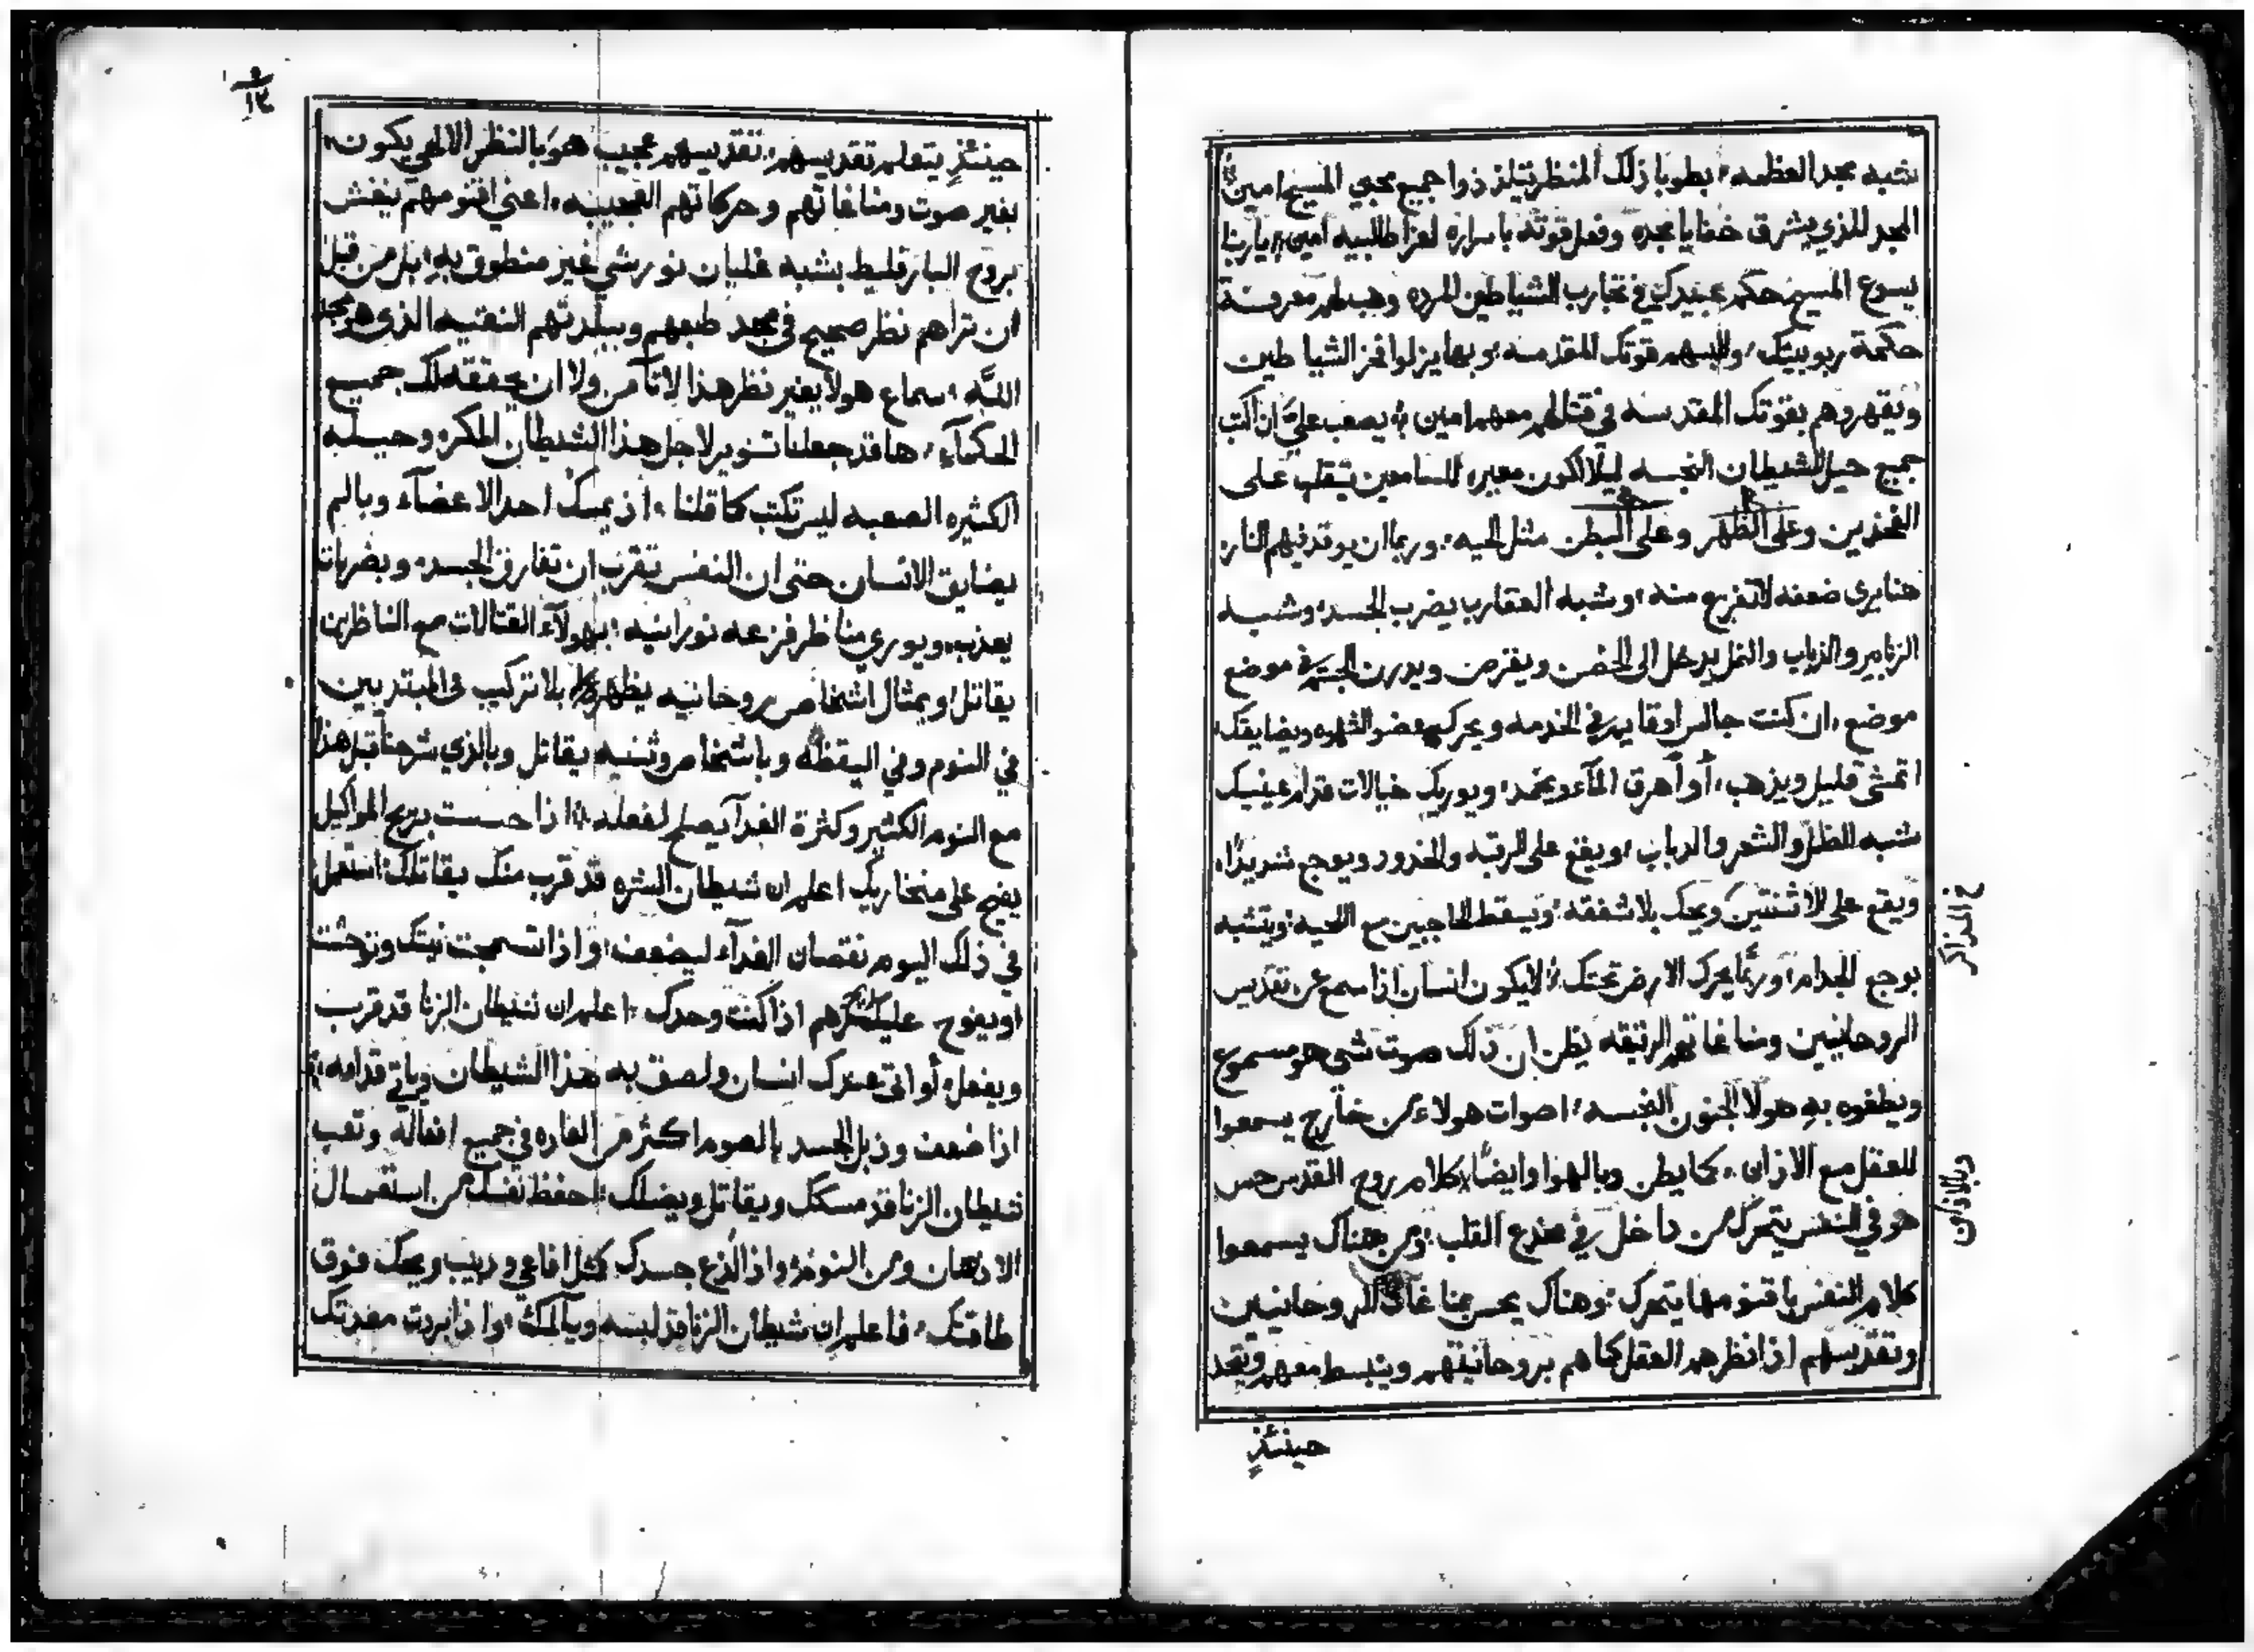 نشبه مجد العظمه بطوبا ذلك المنظر يتلذذوا جميع محبي المسيح امين
المجد للذي يشرق خفايا مجده وفعل قوته باسراره لعزا طالبيه امين يا ربنا
يسوع المسيح حكم عبيدك في تجارب الشياطين المرده وهب لهم معرفة
حكمة ربوبيتك والبسهم قوتك المقدسه وبها يزلوا فخز الشياطين
ويقهروهم بقوتك المقدسه في قتالهم معهم امين يصعب علي ان اكتب
جميع حيل الشيطان النجسه ليلا اكون معيره للسامعين يتقلب على
الفخذين وعلى الظهر وعلى البطن مثل الحيه وربما ان يوقد فيهم النار
هنا يرى ضعفه لا تفزع منه وشبه العقارب يضرب الجسد وشبه
الزنابير والذباب والنمل يدخل الى الحضن ويقرص ويدرن الجسم في موضع
موضع ان كنت جالس اوقايم في الخدمه ويحرك عضو الشهوه ويضايقك
اتمشى قليل ويذهب أو أهرق المآء ويخمد ويوريك خيالات قدام عينيك
شبه الظل والشعر والدباب ويقع على الرقبه والخدود ويوجع شديدًا
ويقع على الاثنتين ويحك بلا شفقه ويسقط الحاجبين مع اللحيه ويتشبه
خ المذاكر
بوجع الجدام وربما يحرك الارض تحتك لا يكون انسان اذا سمع عن تقديس
الروحانيين ومناغاتهم الرقيقه يظن ان ذلك صوت شي هو مسموع
ويطغوه به هولا الجنون النجسه اصوات هولاء من خارج يسمعوا
للعقل مع الاذان كما يظن وبالهوا وايضًا كلام روح القدس حس
وبالاذان
هو في النفس يتحرك من داخل في مخدع القلب ومن هناك يسمعوا
كلام النفس باقنومها يتحرك وهناك يحس بمناغاة الروحانيين
وتقديسهم اذا نظرهم العقل كما هم بروحانيتهم وينبسط معهم ويتحد
حينئذٍ
١٢
حينئذٍ يتعلم تقديسهم تقديسهم عجيب هو بالنظر الالهي يكون
بغير صوت ومناغاتهم وحركاتهم العجيبه اعني اقنومهم ينغش
بروح البارقليط بشبه غليان نور شي غير منطوق به بل من قبل
ان تراهم نظر صحيح في مجد طبعهم وببلدتهم النقيه الذي هو مجد
اللَّه سماع هولا بغير نظر هذا لا تآمن ولا ان يحققه لك جميع
الحكمآء ها قد جعلنا تنوير لاجل هذا الشيطان المكره وحيله
الكثيره الصعبه ليس تكتب كما قلنا اذ يمسك احد الاعضآء وبالم
يضايق الانسان حتى ان النفس تقرب ان تفارق الجسد وبضرباتنا
يعذب ويوري مناظر فزعه نورانيه بهولآء القتالات مع الناظرين
يقاتل وبمثال اشخاص روحانيه يظهر بلا تركيب في المبتديين
في النوم وفي اليقظه وباشخاص وثنيه يقاتل وبالذي شرحنا قبل هذا
مع النوم الكثير وكثرة الغدآ يصلح لفعله اذا حسست بريح المواكيل
يفيح على منخاريك اعلم ان شيطان الشره قد قرب منك يقاتلك استعمل
في ذلك اليوم نقصان الغدآء ليضعف واذا اتسمجت نيتك وتوحشت
او يفوح عليك ريح زهم اذا كنت وحدك اعلم ان شيطان الزنا قد قرب
ويفعل أو اتى عندك انسان ولصق به هذا الشيطان وياتي قدامه
اذا ضعف وذبل الجسد بالصوم اكثر من العاده في جميع افعاله وتعب
شيطان الزنا قد مسكك ويقاتل ويضلك احفظ نفسك من استعمال
الادهان ومن النوم واذا لذع جسدك كمثل افاعي ودبيب ويحك فوق
طاقتك فاعلم ان شيطان الزنا قد لبسه ويآلمك واذا بردت معدتك